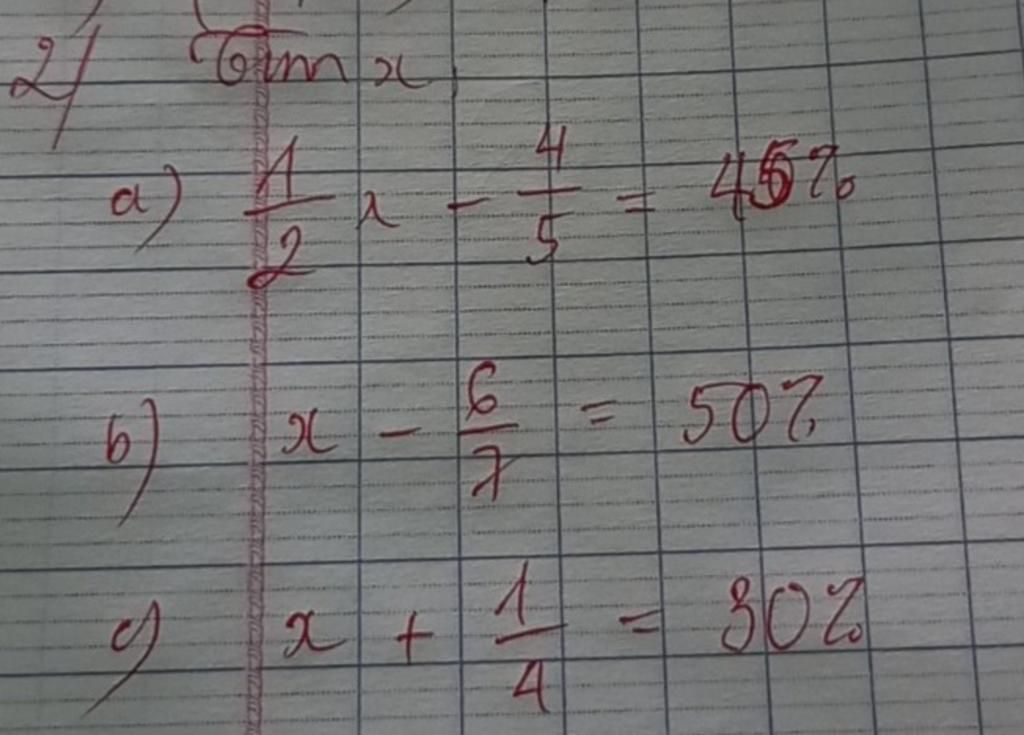 2) Tìm x
a) 1/2 x - 4/5 = 45%
b) x - 6/7 = 50%
c) x + 1/4 = 30%